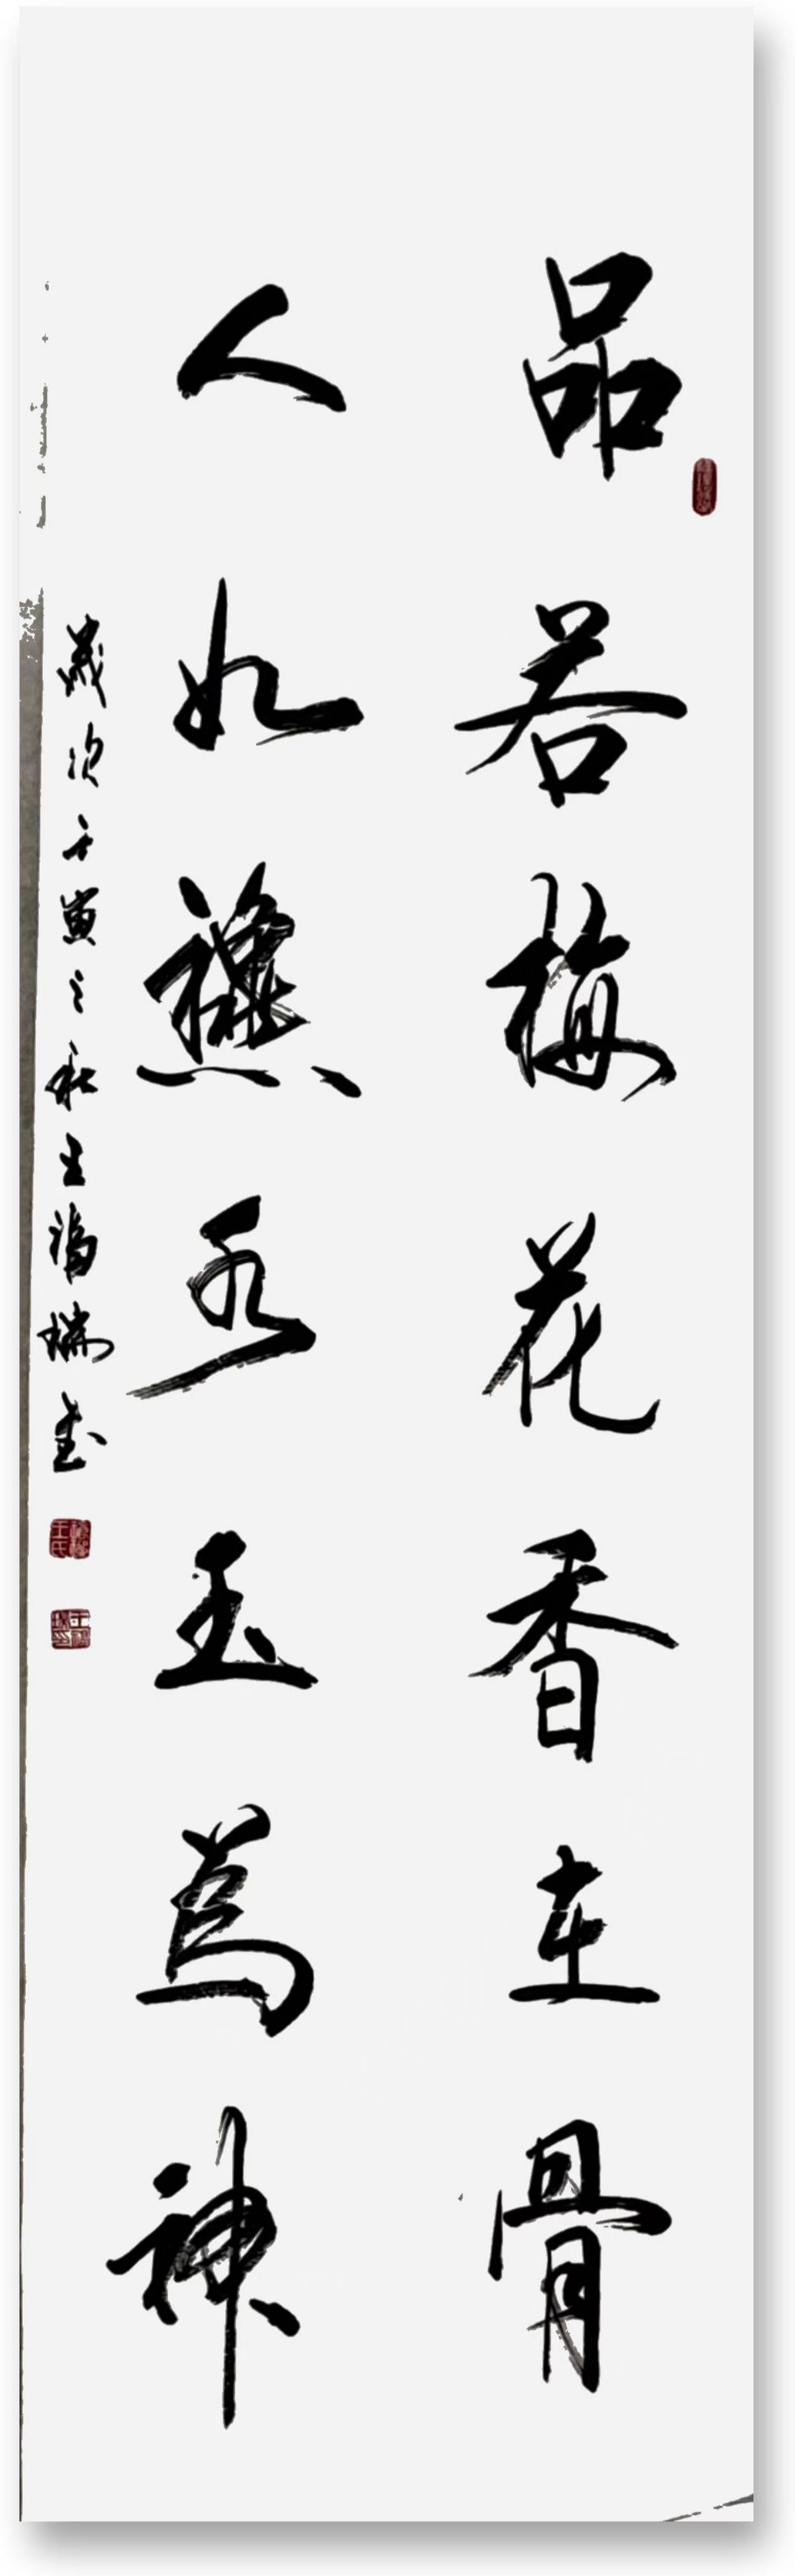 品若梅花香在骨
人如秋水玉為神
歲次壬寅之秋王福瑞書